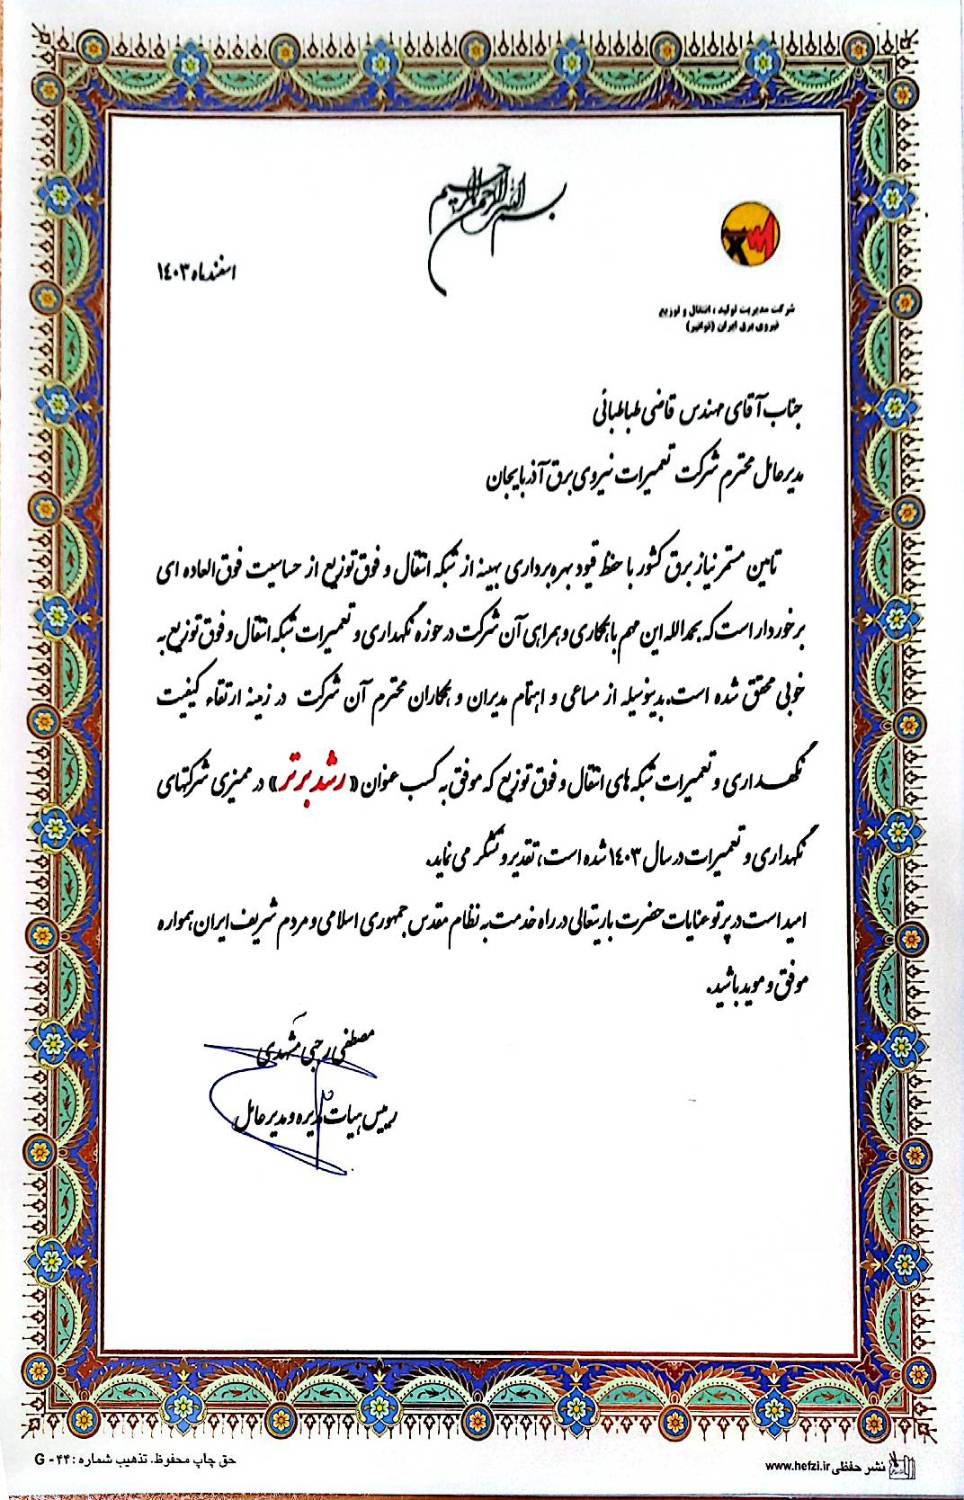 بسم الله الرحمن الرحیم
اسفندماه ۱٤۰۳
شرکت مدیریت تولید ، انتقال و توزیع
نیروی برق ایران (توانیر)
جناب آقای مهندس قاضی طباطبائی
مدیرعامل محترم شرکت تعمیرات نیروی برق آذربایجان
تامین مستمر نیاز برق کشور با حفظ قیود بهره برداری بهینه از شبکه انتقال و فوق توزیع از حساسیت فوق العاده ای
برخوردار است که بحمدالله این مهم با همکاری و همراهی آن شرکت در حوزه نگهداری و تعمیرات شبکه انتقال و فوق توزیع به
خوبی محقق شده است. بدینوسیله از مساعی و اهتمام مدیران و همکاران محترم آن شرکت در زمینه ارتقاء کیفیت
نگهداری و تعمیرات شبکه های انتقال و فوق توزیع که موفق به کسب عنوان «رشد برتر» در ممیزی شرکتهای
نگهداری و تعمیرات در سال ۱٤۰۳ شده است، تقدیر و تشکر می نماید.
امید است در پرتو عنایات حضرت باریتعالی در راه خدمت به نظام مقدس جمهوری اسلامی و مردم شریف ایران همواره
موفق و موید باشید.
مصطفی رجبی مشهدی
رییس هیات مدیره و مدیرعامل
حق چاپ محفوظ. تذهیب شماره : ۴۴ - G
نشر حفظی www.hefzi.ir